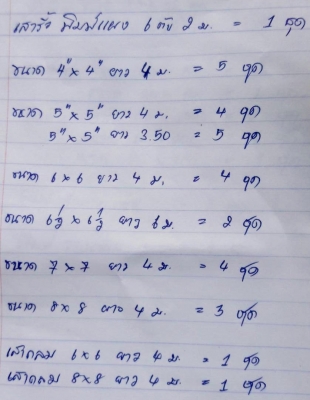 เสารั้ว พิมพ์แผง 6 ตับ 2 ม. = 1 ชุด
ขนาด 4" x 4" ยาว 4 ม. = 5 ชุด
ขนาด 5" x 5" ยาว 4 ม. = 4 ชุด
5" x 5" ยาว 3.50 = 5 ชุด
ขนาด 6 x 6 ยาว 4 ม. = 4 ชุด
ขนาด 6½ x 6½ ยาว 6 ม. = 2 ชุด
ขนาด 7 x 7 ยาว 4 ม. = 4 ชุด
ขนาด 8 x 8 ยาว 4 ม. = 3 ชุด
เสากลม 6 x 6 ยาว 4 ม. = 1 ชุด
เสากลม 8 x 8 ยาว 4 ม. = 1 ชุด